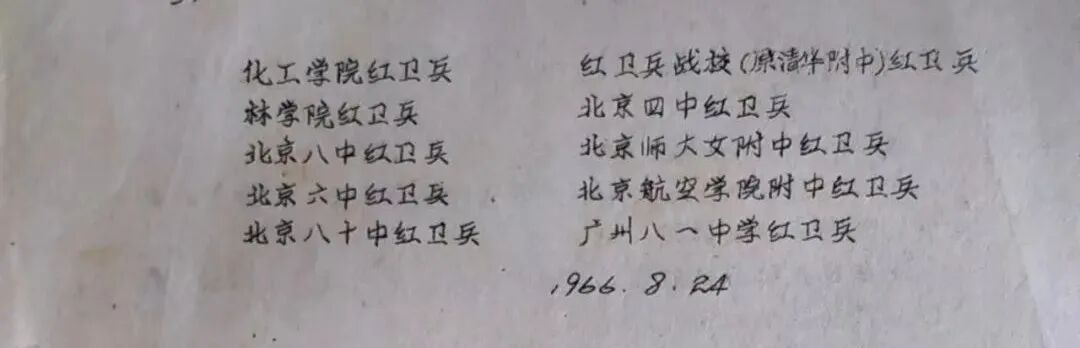 化工学院红卫兵 红卫兵战校(原清华附中)红卫兵
林学院红卫兵 北京四中红卫兵
北京八中红卫兵 北京师大女附中红卫兵
北京六中红卫兵 北京航空学院附中红卫兵
北京八十中红卫兵 广州八一中学红卫兵
1966.8.24